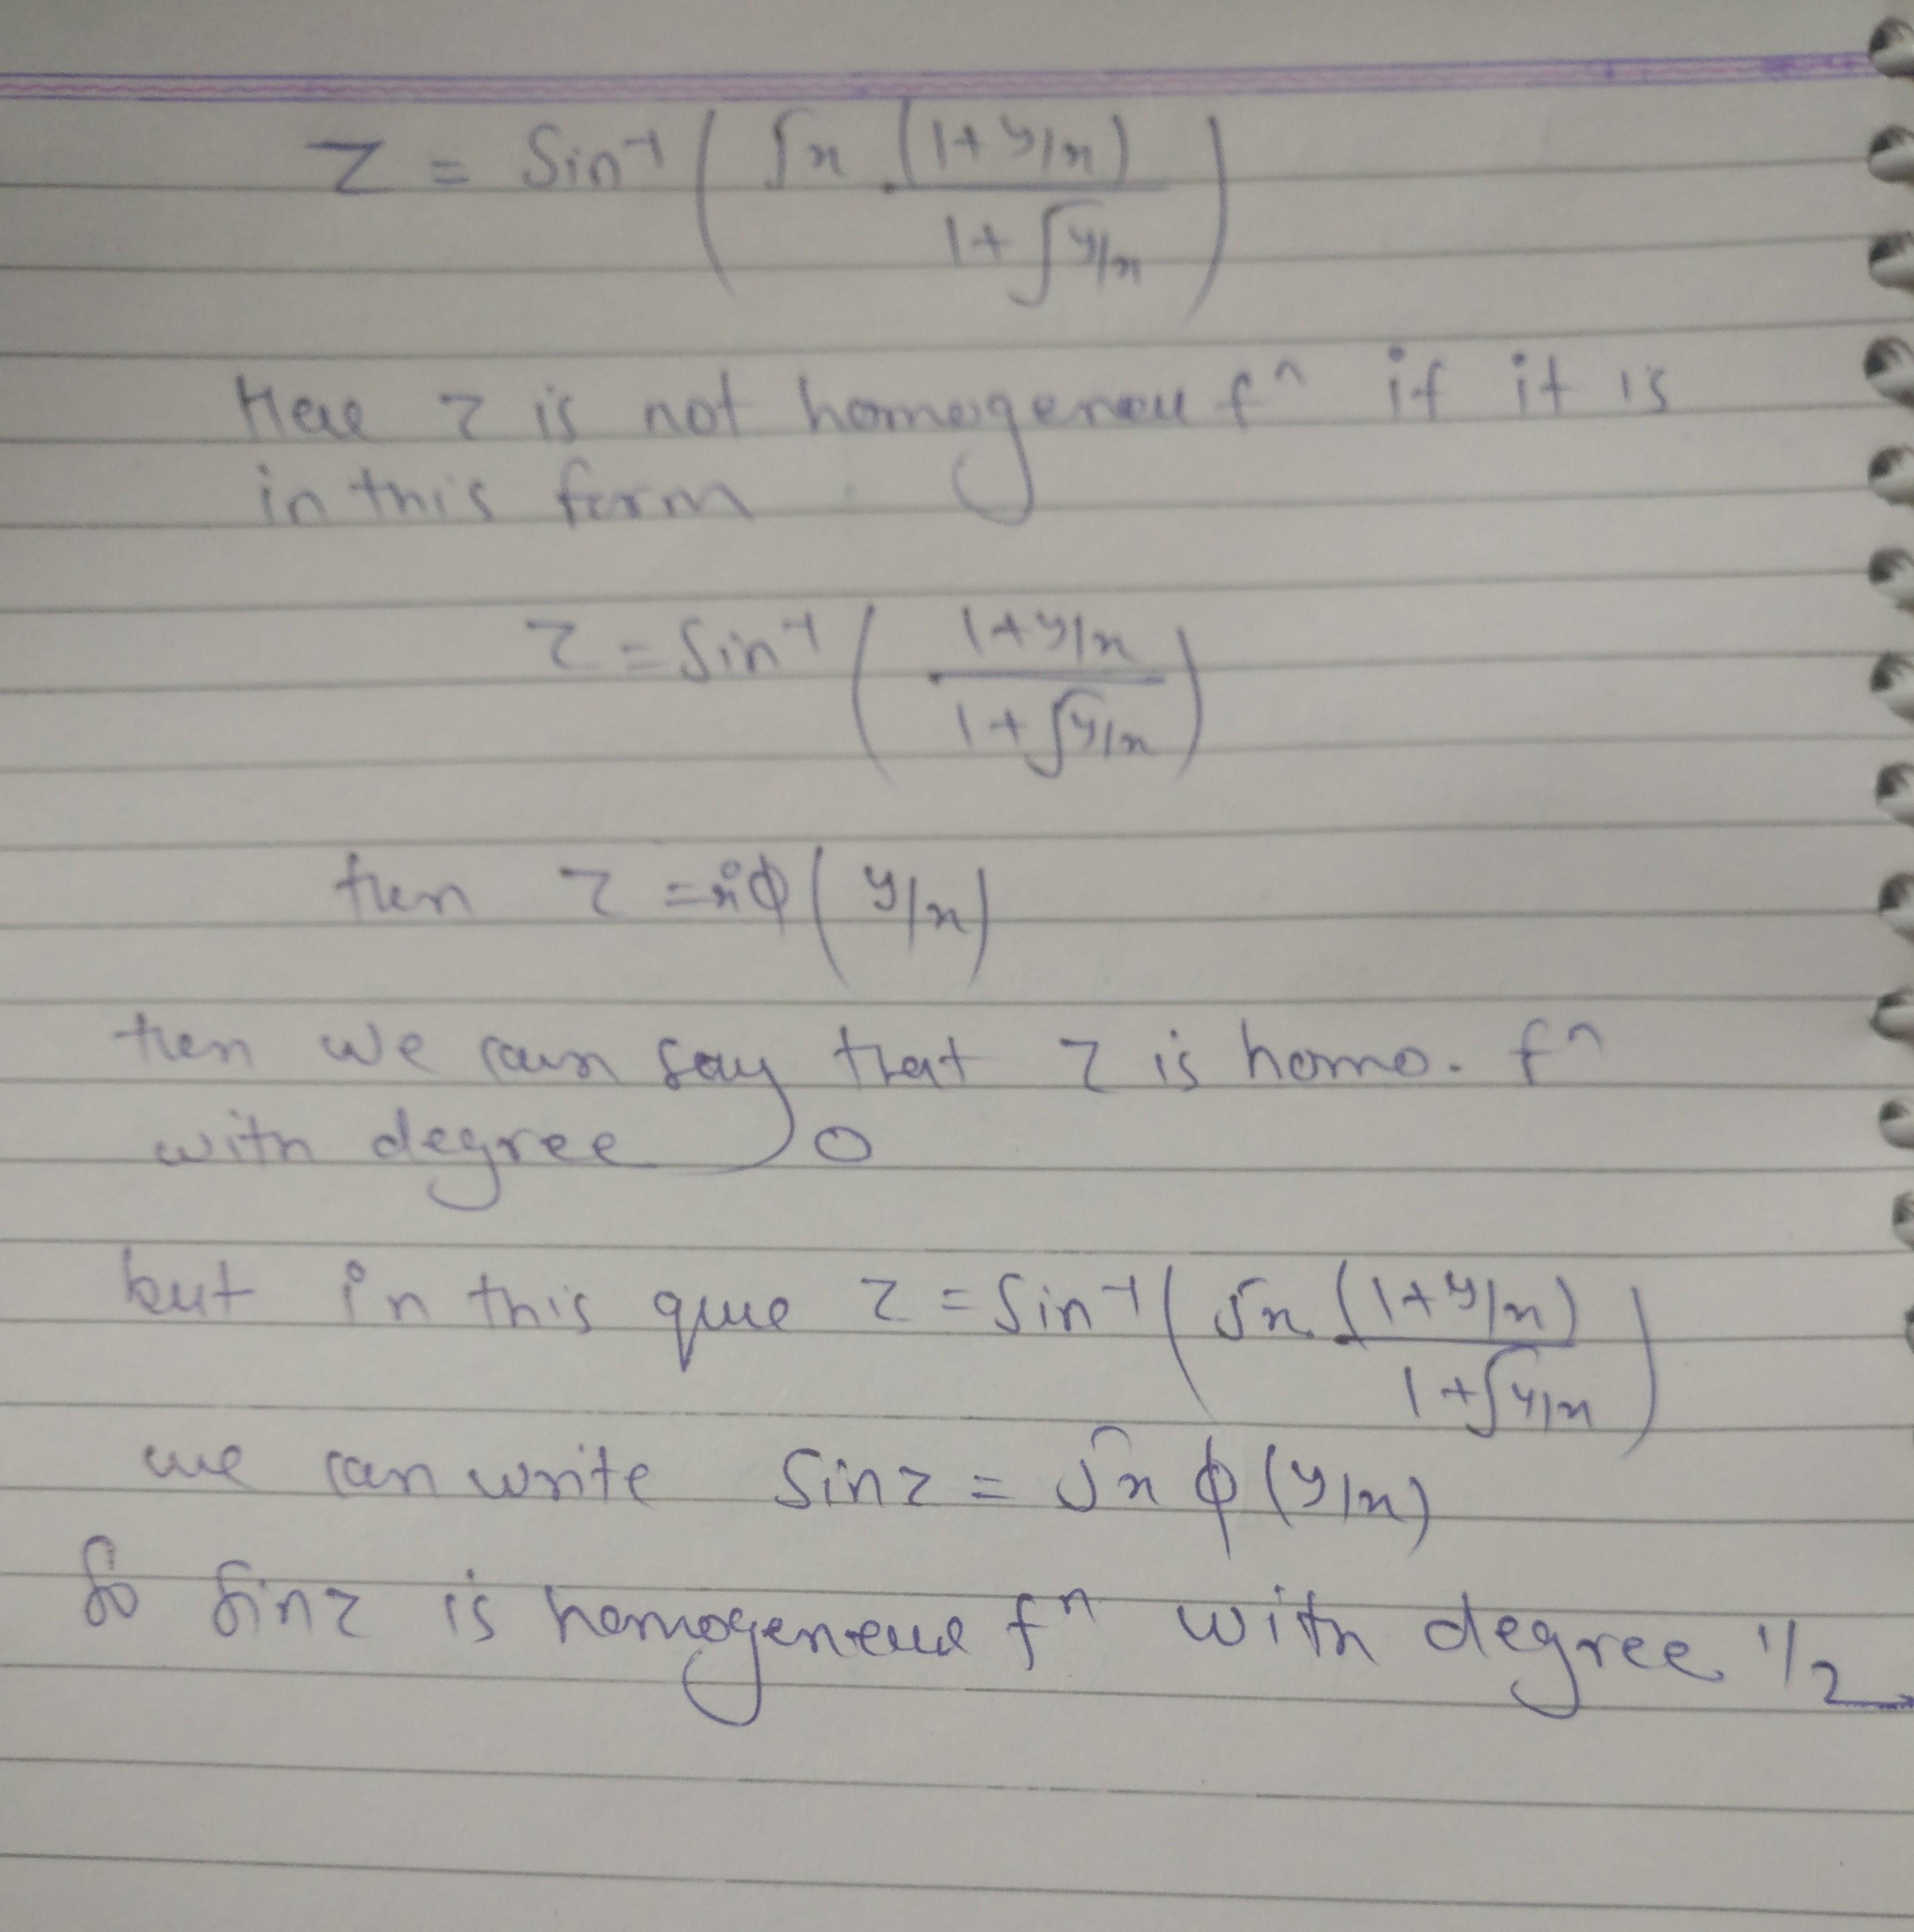 z = Sin⁻¹ ( √x (1+y/x) / 1+√y/x )
Here z is not homogeneou fⁿ if it is
in this form
z = Sin⁻¹ ( 1+y/x / 1+√y/x )
then z = x⁰ϕ ( y/x )
then we can say that z is homo. fⁿ
with degree 0
but in this que z = Sin⁻¹ ( √x (1+y/x) / 1+√y/x )
we can write Sinz = √x ϕ (y/x)
So Sinz is homogeneoue fⁿ with degree 1/2